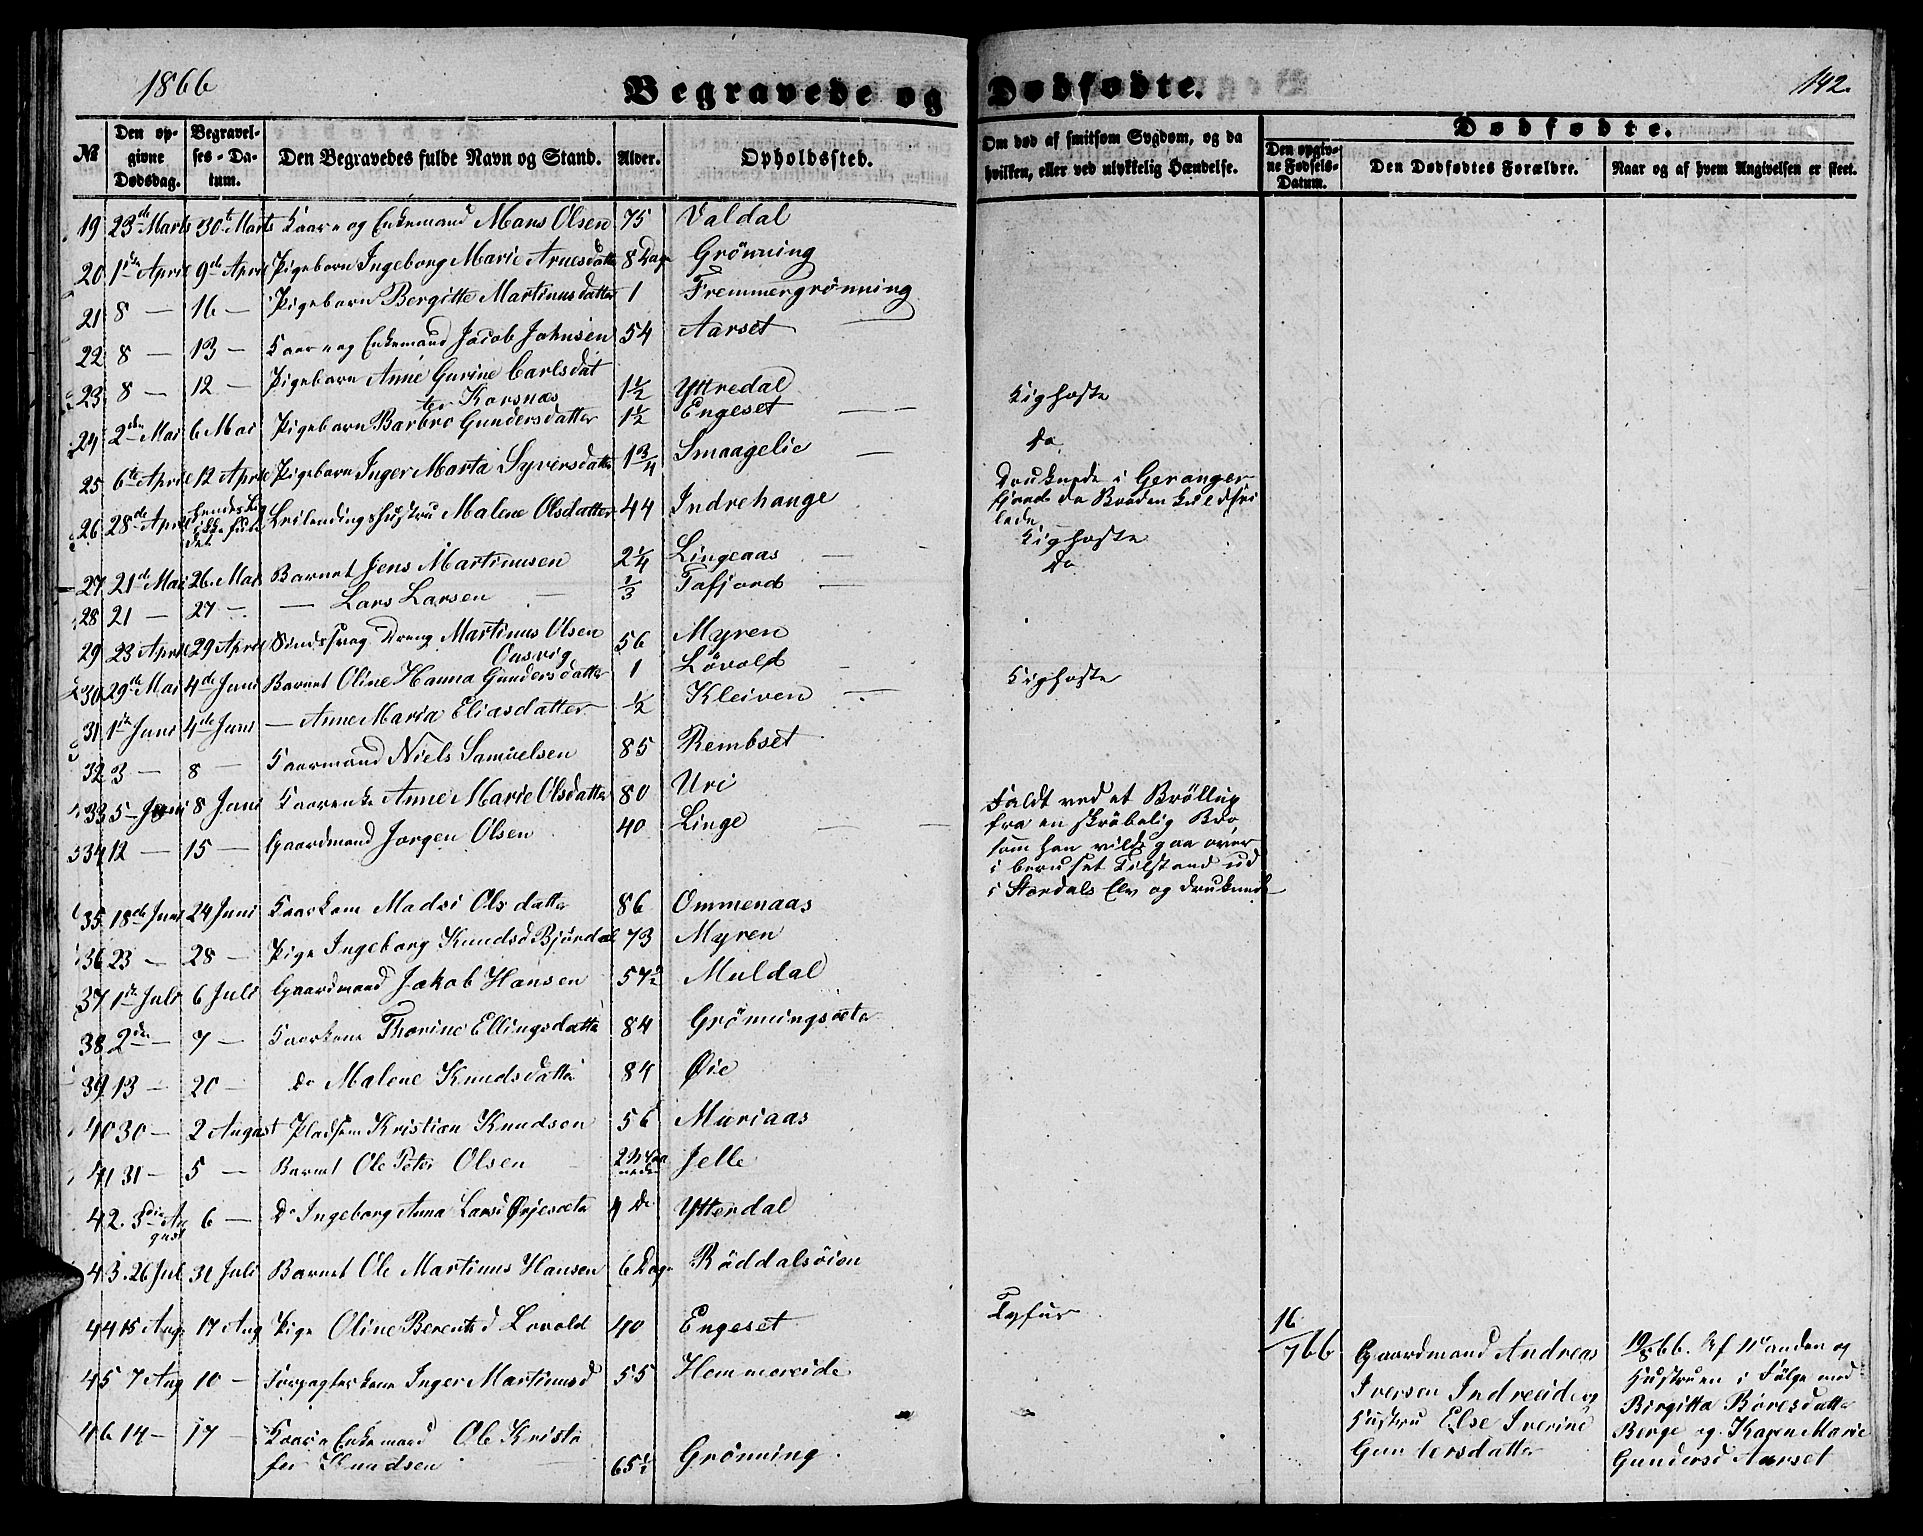 1866
Begravede og Dødfødte.
142.
№
Den opgivne Dødsdag.
Begravelses-Datum.
Den Begravedes fulde Navn og Stand.
Alder.
Opholdssted.
Om død af smitsom Sygdom, og da hvilken, eller ved ulykkelig Hændelse.
Dødfødte.
Den opgivne Fødsels-Datum.
Den Dødfødtes Forældre.
Naar og af hvem Angivelsen er skeet.
19 23de Marts 30te Marts Kaar og Enkemand Mons Olsen 75 Valdal
20 1ste April 9de April Pigebarn Ingeborg Marie Arnesdatter 8 Dage Grönning
21 8 — 16 — Pigebarn Bergitte Martinusdatter 1 Fremmergrönning
22 8 — 13 — Kaar og Enkemand Jacob Johnsen 54 Aarset
23 8 — 12 — Pigebarn Anne Gurine Carlsdat
ter Korsnæs 1½ Yttredal Kighoste
24 2den Mai 6 Mai Pigebarn Barbro Gundersdatter 1½ Engeset do
25 6te April 12 April Pigebarn Inger Marta Syversdatter 1¾ Smaagelie
26 28de April Leilendingshustru Malene Olsdatter 44 Indrehauge Druknede i Geranger-
fjord da Baaden kuldsei
lede
27 21de Mai 26 Mai Barnet Jens Martinusen 2¼ Lingeaas Kighoste
28 21 — 27 — — Lars Larsen ⅓ Tafjord do
29 23 April 29 April Sindssvag Dreng Martinus Olsen
Aasvig 56 Myren
30 29de Mai 4de Juni Barnet Oline Hanna Gundersdatter 1 Lövold Kighoste
31 1ste Juni 4de Juni — Anne Maria Eliasdatter ½ Kleiven
32 3 — 8 — Kaarmand Niels Samuelsen 85 Rembset
33 5 Juni 8 Juni Kaarenke Anne Marie Olsdatter 80 Uri
34 12 — 15 — Gaardmand Jorgen Olsen 40 Linge
Faldt ved et Bröllup
fra en skröbelig Bro
som han vilde gaa over
i beruset Tilstand ud
i Stordals Elv og druknede
35 18de Juni 24 Juni Kaarkone Madsi Olsdatter 86 Ommenaas
36 23 — 28 — Pige Ingeborg Knudsd Bjørdal 73 Myren
37 1ste Juli 6 Juli Gaardmand Jakob Hansen 57½ Muldal
38 2den — 7 — Kaarkone Thorine Ellingsdatter 84 Grönningsæter
39 13 — 20 — do Malene Knudsdatter 84 Øie
40 30 — 2 August Pladsem Kristian Knudsen 56 Muriaas
41 31 — 5 — Barnet Ole Peter Olsen Jelle
42 3die August 6 — do Ingeborg Anna Larsd Ørjesæter 4 do Ytterdal
43 26 Jul 31 Juli Barnet Ole Martinus Hansen 6 Dage Röddalsöien
44 15 Aug 17 Aug Pige Oline Berentsd Lovold 40 Engeset Tyfus
45 7 Aug 10 — Forpagterkone Inger Martinusd 55 Hemmoreide
46 14 — 17 — Kaar Enkemand Ole Kristo
fer Knudsen 65½ Grönning
16/7 66
Gaardmand Andreas
Iversen Indreeide og
Hustru Else Iverine
Gundersdatter
19/8 66. Af Manden og
Hustruen i Fölge med
Birgitta Böresdatter
Berge og Karen Marie
Gundersd Aarset